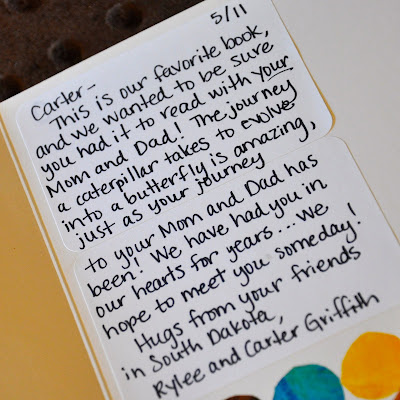 5/11
Carter-
This is our favorite book,
and we wanted to be sure
you had it to read with your
Mom and Dad! The journey
a caterpillar takes to evolve
into a butterfly is amazing,
just as your journey
to your Mom and Dad has
been! We have had you in
our hearts for years... We
hope to meet you someday!
Hugs from your friends
in South Dakota,
Rylee and Carter Griffith